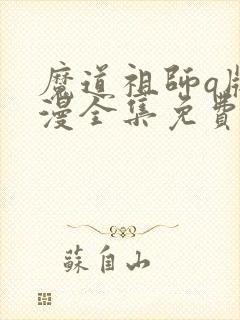 魔道祖師q版
漫全集免費
蘇自山